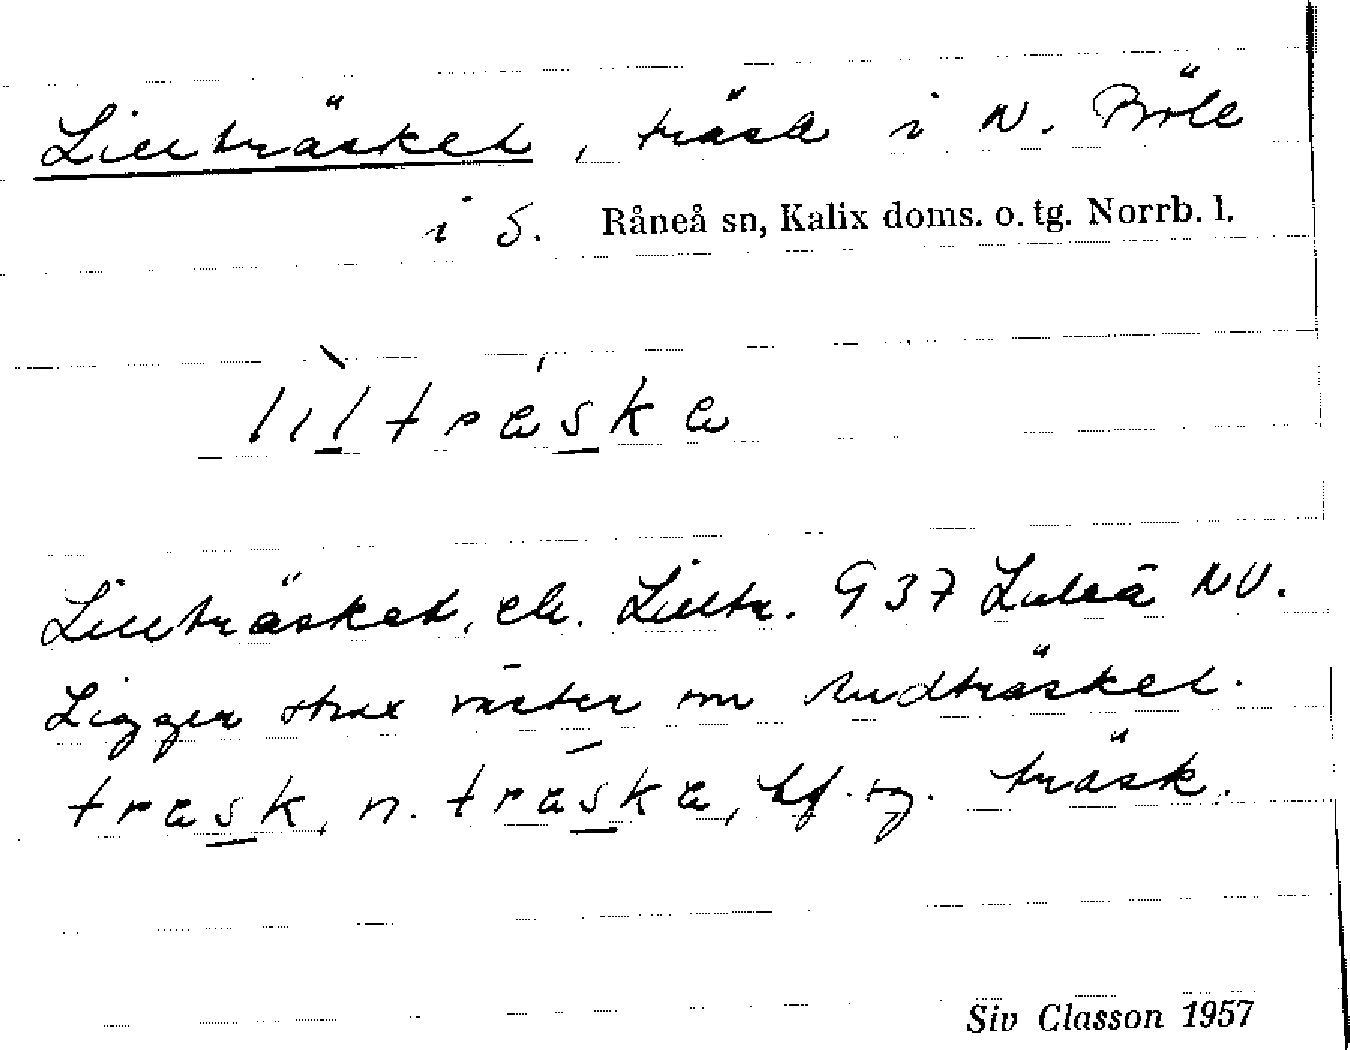 Lillträsket, träsk i N. Pröle
i S. Råneå sn, Kalix doms. o. tg. Norrb. l.
lìltræska
Lillträsket, ek. Lilltr. 937 Luleå NV.
Ligger strax väster om Rudträsket.
træsk, n. træska, bf. sg. träsk.
Siv Classon 1957